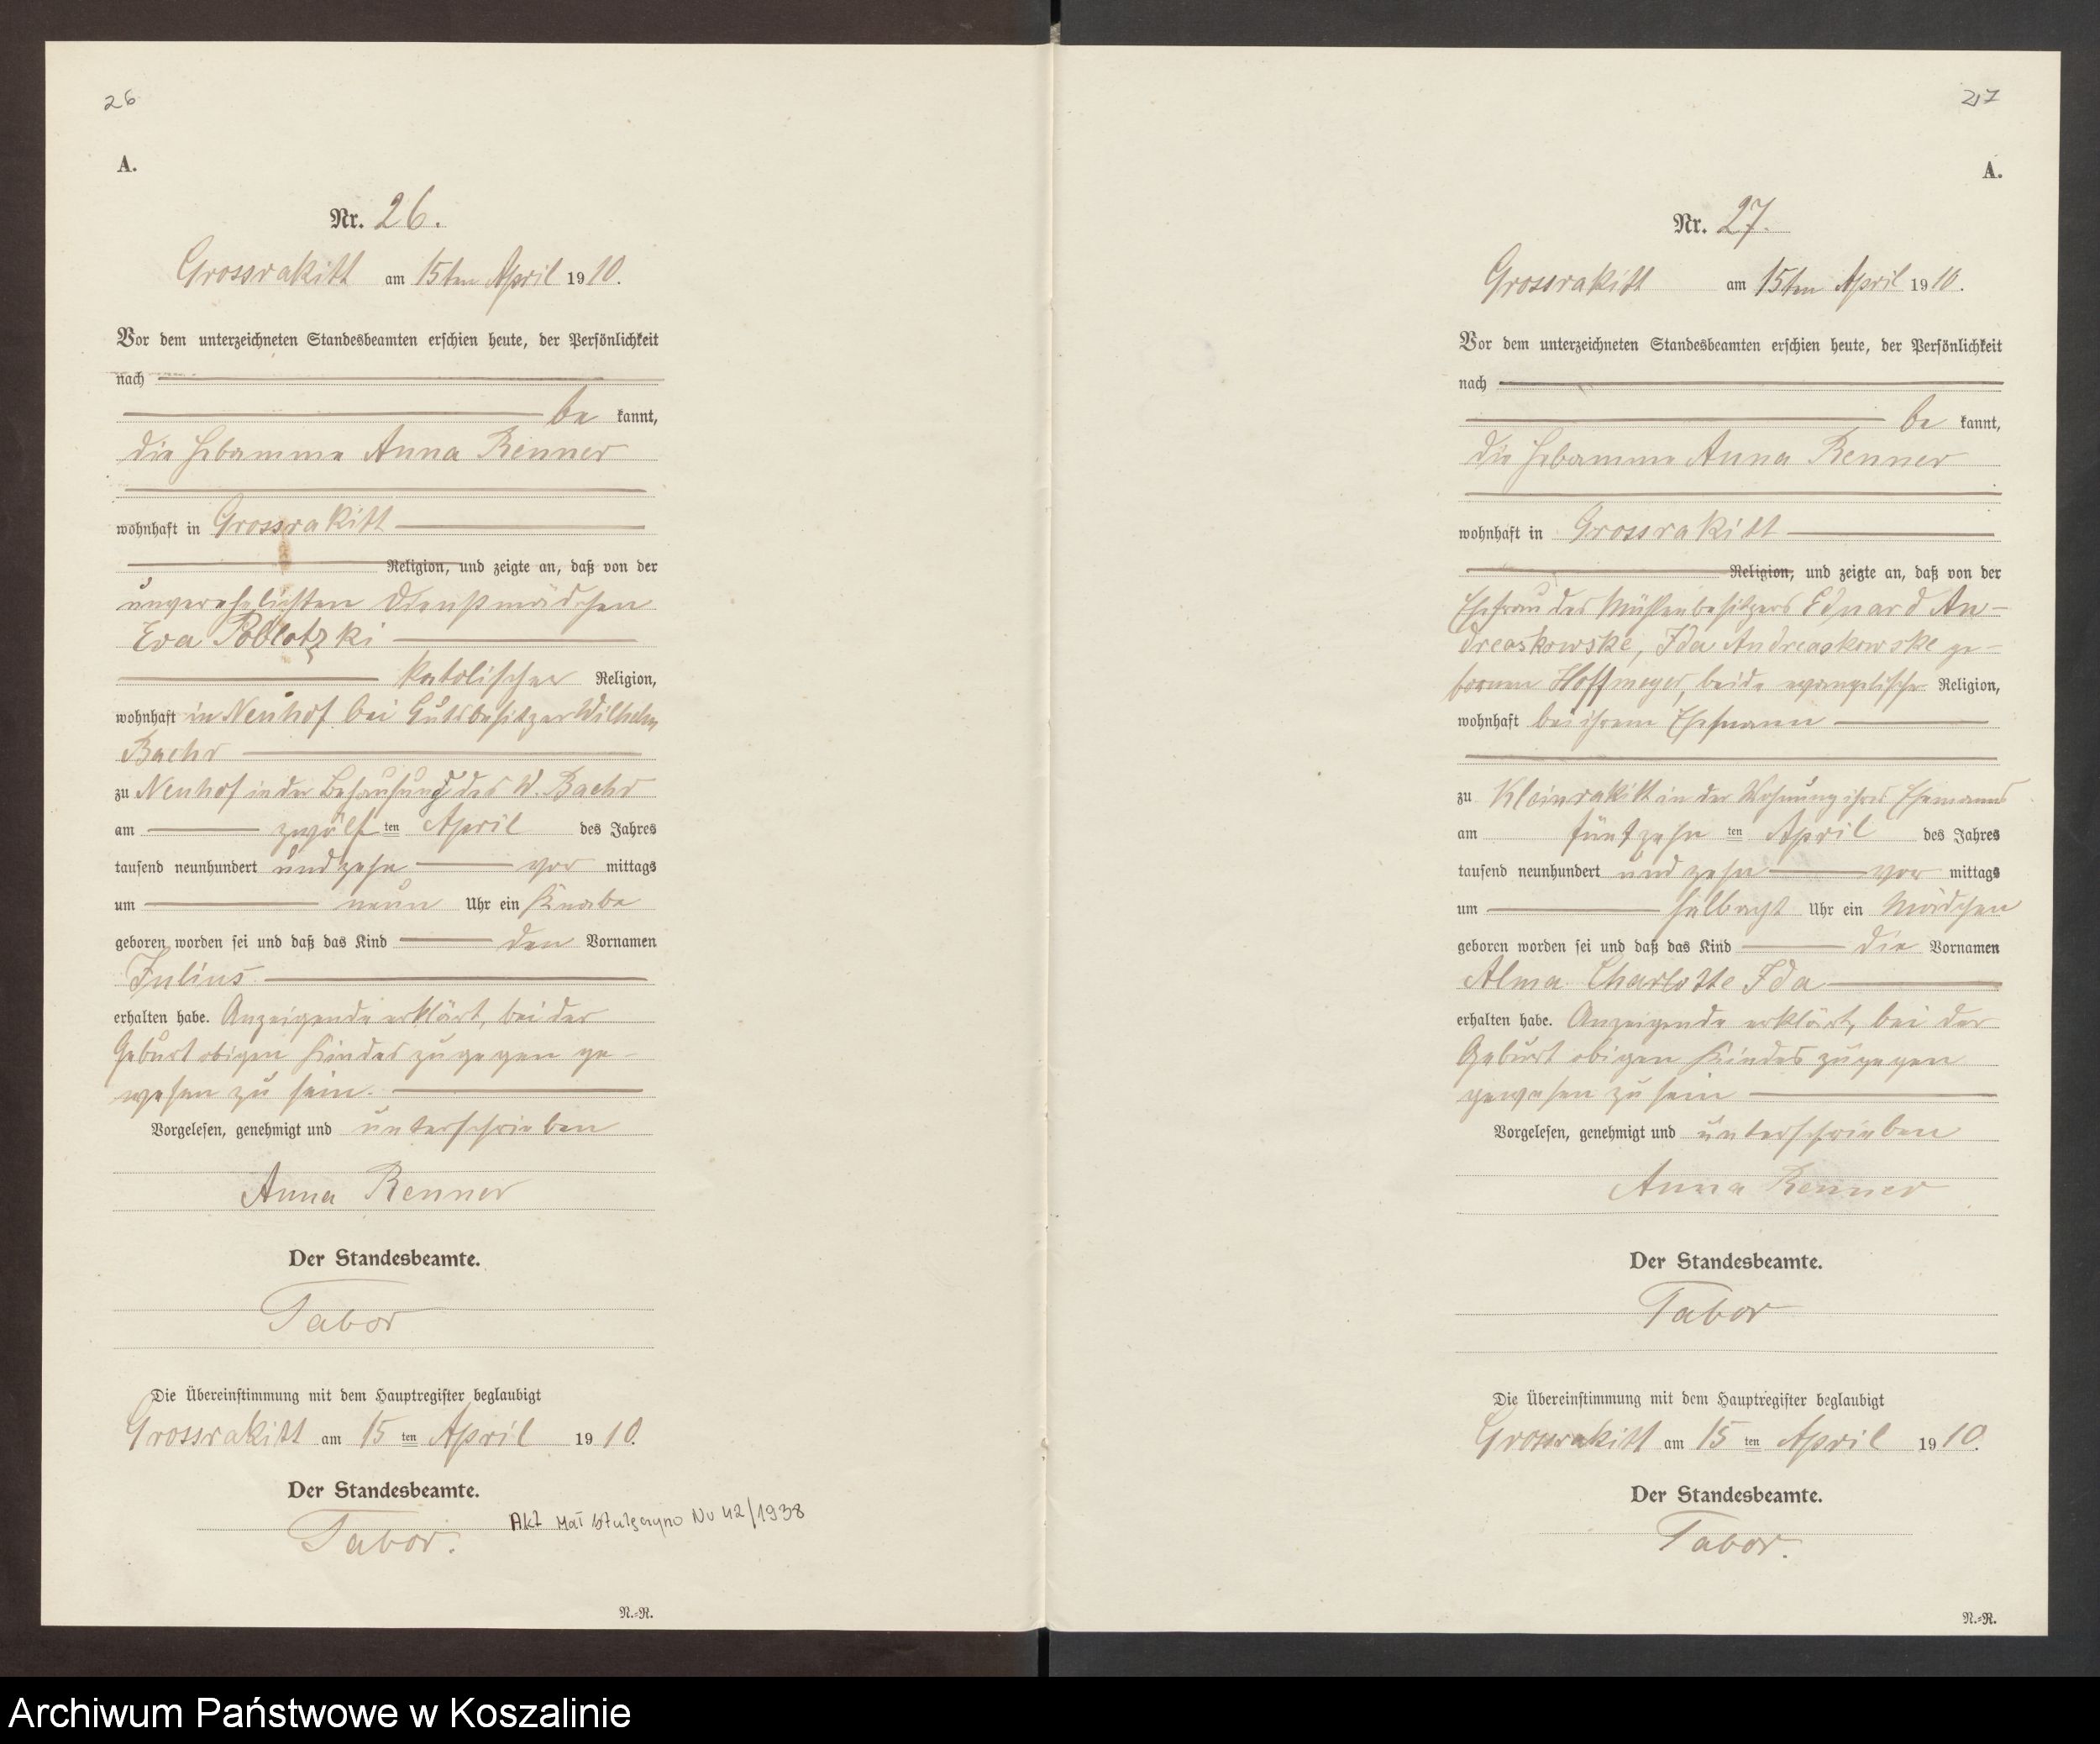 26
A.
Nr. 26.
Grossrakitt am 15ten April 1910.
Vor dem unterzeichneten Standesbeamten erschien heute, der Persönlichkeit
nach
be kannt,
die Hebamme Anna Renner
wohnhaft in Grossrakitt
Religion, und zeigte an, daß von der
unverehelichten Dienstmädchen
Eva Poblotzki
katolischer Religion,
wohnhaft in Neuhof bei Gutsbesitzer Wilhelm
Baehr
zu Neuhof in der Behausung des W. Baehr
am zwölften April des Jahres
tausend neunhundert und zehn vor mittags
um neun Uhr ein Knabe
geboren worden sei und daß das Kind den Vornamen
Julius
erhalten habe. Anzeigende erklärt, bei der
Geburt obigen Kindes zugegen ge-
wesen zu sein.
Vorgelesen, genehmigt und unterschrieben
Anna Renner
Der Standesbeamte.
Tabor
Die Übereinstimmung mit dem Hauptregister beglaubigt
Grossrakitt am 15ten April 1910.
Der Standesbeamte.
Tabor.
Akt 42/1938
N.=R.
27
A.
Nr. 27.
Grossrakitt am 15ten April 1910.
Vor dem unterzeichneten Standesbeamten erschien heute, der Persönlichkeit
nach
be kannt,
die Hebamme Anna Renner
wohnhaft in Grossrakitt
Religion, und zeigte an, daß von der
Ehefrau des Mühlenbesitzers Eduard An-
dreaskowske, Ida Andreaskowske ge-
borenen Hoffmeyer, beide evangelischer Religion,
wohnhaft bei ihrem Ehemann
zu Kleinrakitt in der Wohnung ihres Ehemanns
am fünfzehnten April des Jahres
tausend neunhundert und zehn vor mittags
um halb acht Uhr ein Mädchen
geboren worden sei und daß das Kind die Vornamen
Alma Charlotte Ida
erhalten habe. Anzeigende erklärt, bei der
Geburt obigen Kindes zugegen
gewesen zu sein
Vorgelesen, genehmigt und unterschrieben
Anna Renner
Der Standesbeamte.
Tabor
Die Übereinstimmung mit dem Hauptregister beglaubigt
Grossrakitt am 15ten April 1910.
Der Standesbeamte.
Tabor.
N.=R.
Archiwum Państwowe w Koszalinie